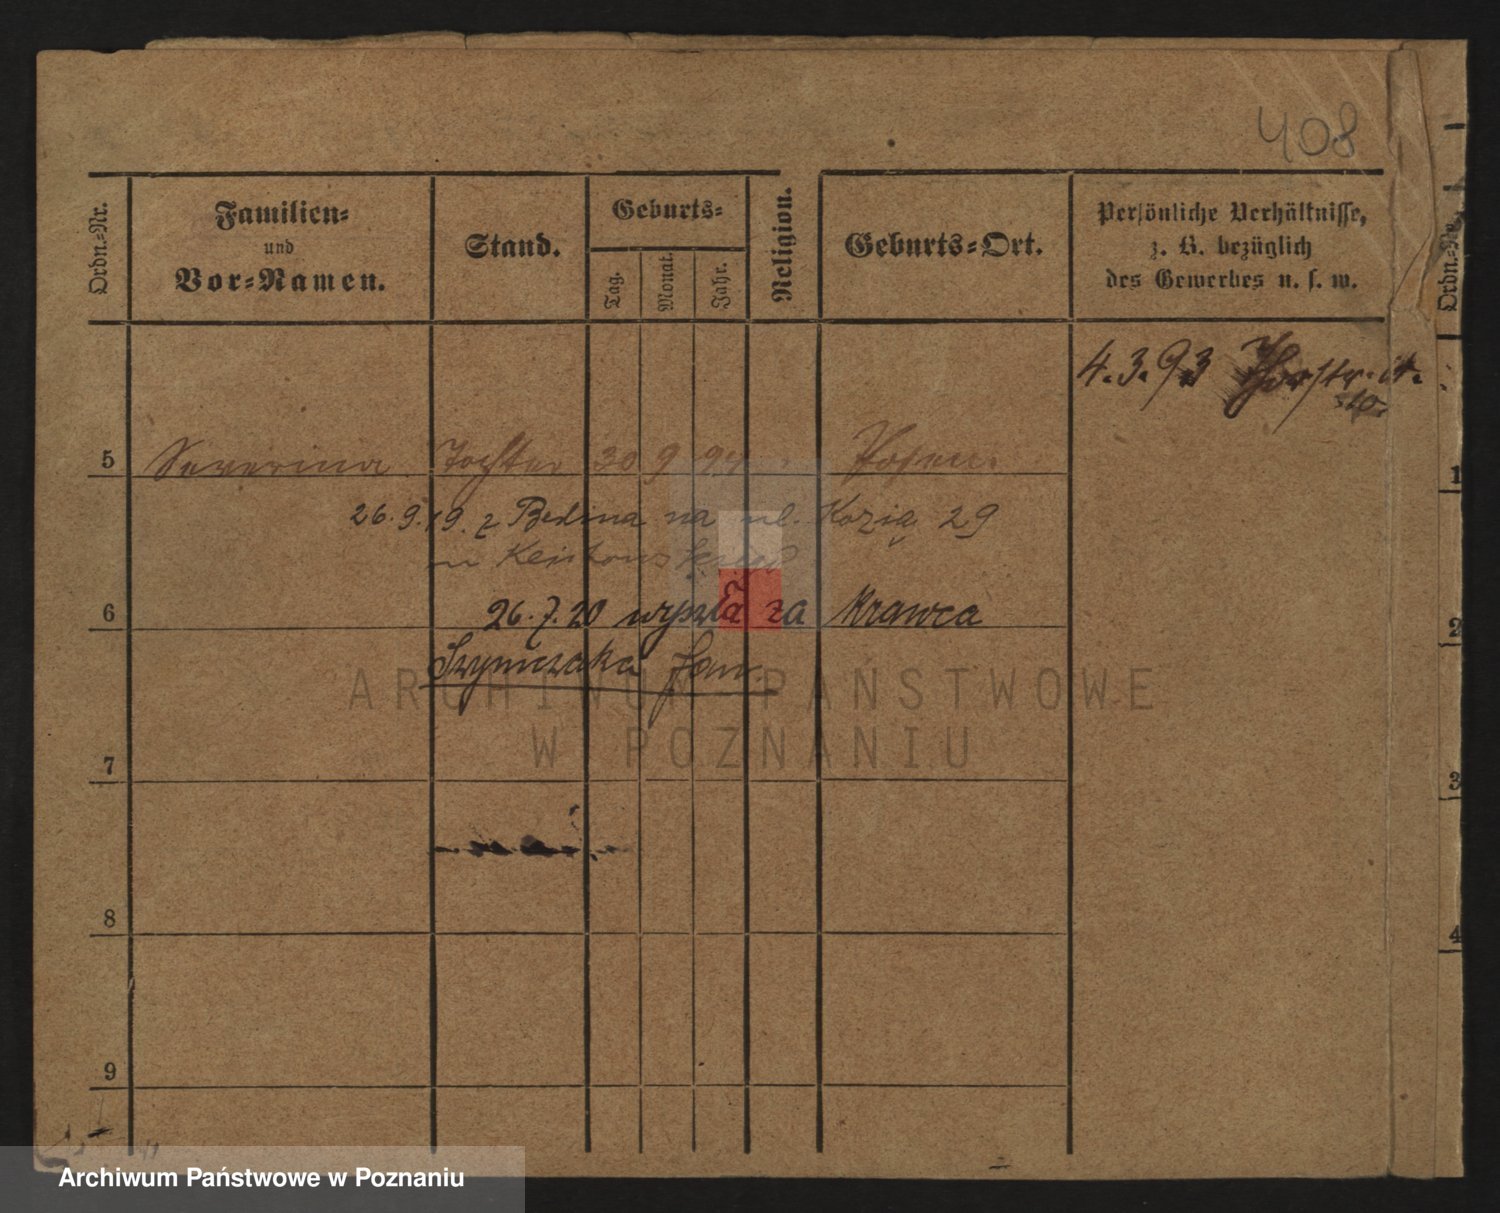 408
Ordn.-Nr.
Familien-
und
Vor-Namen.
Stand.
Geburts-
Tag.
Monat.
Jahr.
Religion.
Geburts-Ort.
Persönliche Verhältnisse,
z. B. bezüglich
des Gewerbes u. s. w.
Ordn.-Nr.
4.3.93
5 Severina Tochter 30 9 94 Posen.
1
26.9.19. z Bedina na ul. Kozią 29
6
26.7.20 wyszła za krawca
2
Szymczaka Jan.
ARCHIWUM PAŃSTWOWE
W POZNANIU
7
3
8
4
9
Archiwum Państwowe w Poznaniu